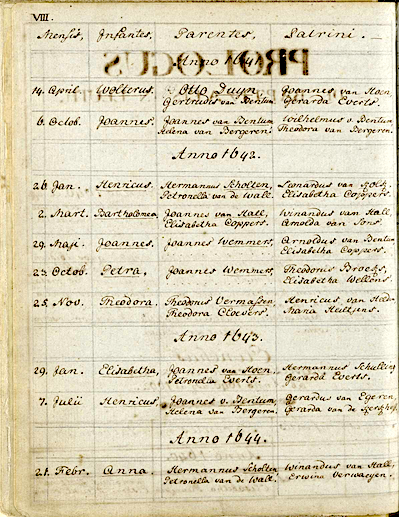 VIII.
Mensis, Infantes, Parentes, Patrini.
Anno 1641.
14. April. Wolterus. Otto Duyn, Joannes van Hoen,
Gertrudis van Bentum. Gerarda Everts.
6. Octob. Joannes. Joannes van Bentum, Wilhelmus v. Bentum,
Helena van Bergeren. Theodora van Bergeren.
Anno 1642.
26. Jan. Henricus. Hermannus Scholten, Leonardus van
Petronella van de Wall. Elisabetha Coppers.
2. Mart. Bartholomea, Joannes van Hall, Winandus van Hall,
Elisabetha Coppers. Arnolda van Sons.
29. Maji. Joannes. Joannes Wemmers, Arnoldus van Bentum,
Elisabetha Coppers.
23. Octob. Petra, Joannes Wemmers, Theodorus Broeks,
Elisabetha Wellens.
25. Nov. Theodora, Theodorus Vermassen, Henricus van
Theodora Cloevers.
Anno 1643.
29. Jan. Elisabetha, Joannes van Hoen, Hermannus Schulting
Petronella Everts. Gerarda Everts.
7. Julii Henricus. Joannes v. Bentum, Gerardus van Egeren,
Helena van Bergeren. Gerarda van de
Anno 1644.
21. Febr. Anna. Hermannus Scholten Winandus van Hall,
Petronella van de Wall. Erwina Verwaeyen.